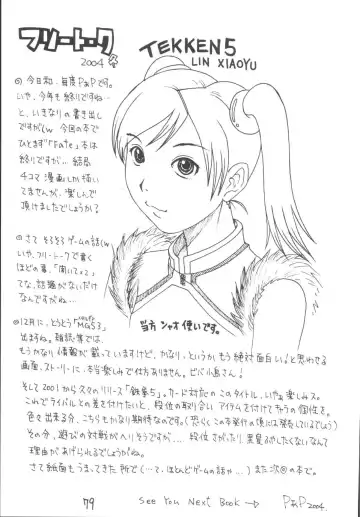 フリートーク冬
2004
TEKKEN5
LIN XIAOYU
◎今日和、毎度PぁPです。
いや、今年も終りですね…
と、いきなりの書き出し
ですが(w 今回の本で
ひとまず「Fate」本は
終りですが… 結局
4コマ漫画しか描い
てませんが、楽しんで
頂けましたでしょうか?
◎さて そろそろゲームの話(w
いや、フリートークで書く
ほどの事、「聞いてっ2」
てな、話題がないだけ
なんですがね…
◎12月に、とうとう「MGS3」
出ますね。雑誌等では
もうかなり情報が載っていますけど、かなり、というか もう絶対面白い!と思わせる
画面、ストーリーに、本当楽しみで仕方ありません。ビバ小島さん!
当方 シャオ使いです。
そして2001から久々のリリース「鉄拳5」。カード対応のこのタイトル、いやぁ楽しみっス。
これでライバルとの差を付けたいと、段位の取り合い アイテムを付けて自らの個性を。
色々出来る分、こちらもかなり期待度なのです。(恐らくこの本発行の後には発売しているでしょう)
その分、遊びの対戦がへりそうですが…… 段位さがったり、黒星ふやしたくないなんて
理由が あげられるでしょうがね。
さて紙面もうまってきた所で(…て、ほとんどゲームの話か…)また次の本で。
79
See You Next Book →
PぁP 2004.